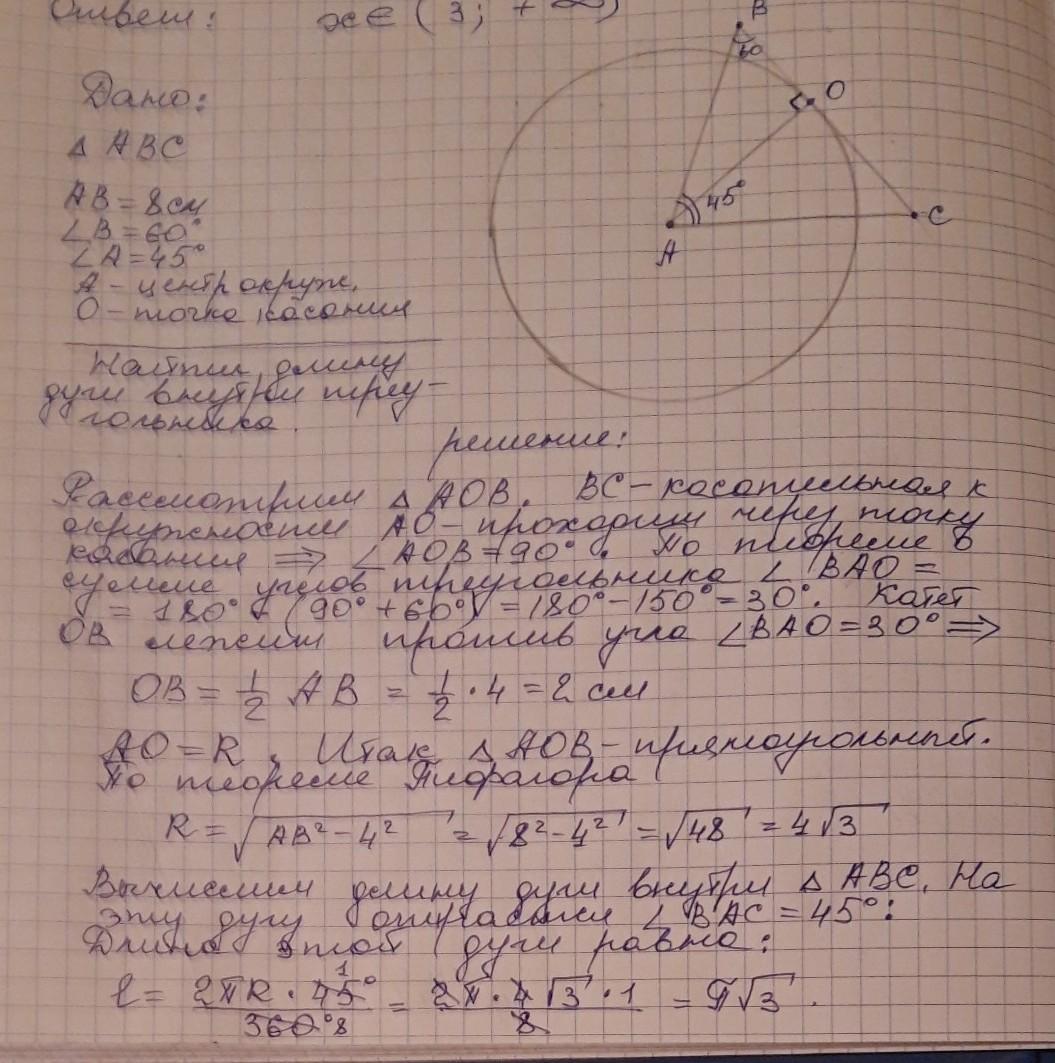 Ответ: x∈(3; +∞)
B
60
O
45°
A
C
Дано:
△ ABC
AB = 8см
∠B = 60°
∠A = 45°
A - центр окруж.
O - точка касания
Найти длину
дуги внутри треу-
гольника.
решение:
Рассмотрим △ AOB. BC - касательная к
окружности AO - проходит через точку
касания ⇒ ∠AOB = 90°. По теореме о
сумме углов треугольника ∠BAO =
= 180° - (90° + 60°) = 180° - 150° = 30°. Катет
OB лежит против угла ∠BAO = 30° ⇒
OB = 1/2 AB = 1/2 · 4 = 2 см
AO = R. Итак △ AOB - прямоугольный.
По теореме Пифагора
R = √(AB² - 4²) = √(8² - 4²) = √48 = 4√3
Вычислим длину дуги внутри △ ABC. На
эту дугу опирается ∠BAC = 45°:
Длина этой дуги равна:
ℓ = (2πR · 45°¹)/(360° 8) = (2π · 4√3 · 1)/8 = π√3.